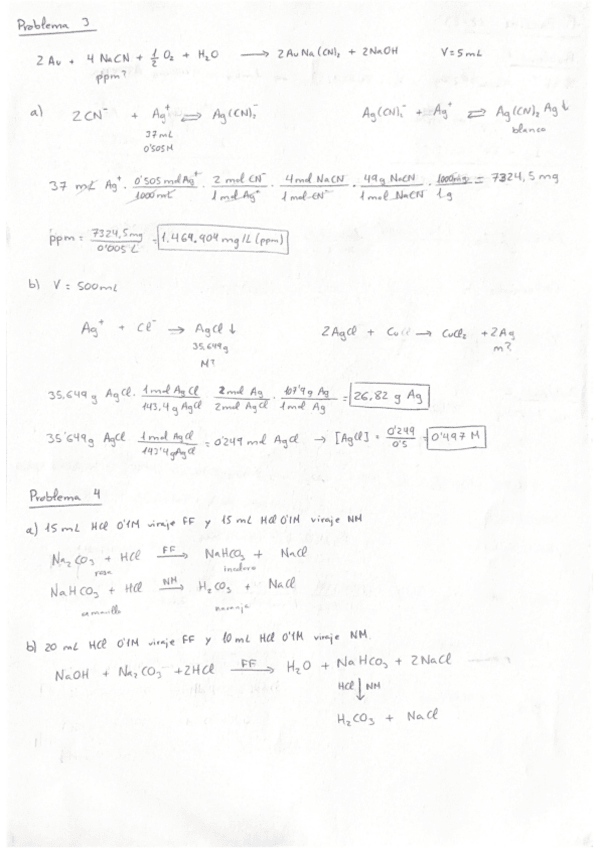 Problema 3
2 Au + 4 NaCN + 1/2 O₂ + H₂O ⟶ 2 AuNa(CN)₂ + 2NaOH V = 5mL
ppm?
a) 2CN⁻ + Ag⁺ ⇌ Ag(CN)₂⁻ Ag(CN)₂⁻ + Ag⁺ ⇌ Ag(CN)₂Ag↓
37mL blanco
0'505M
37 mL Ag⁺ · 0'505 mol Ag⁺/1000mL · 2 mol CN⁻/1 mol Ag⁺ · 4mol NaCN/1 mol CN⁻ · 49g NaCN/1 mol NaCN · 1000mg/1g = 7324,5mg
ppm = 7324,5mg/0'005L = 1.469.404 mg/L (ppm)
b) V = 500mL
Ag⁺ + Cl⁻ → AgCl↓ 2AgCl + → CuCl₂ + 2Ag
35,649g m?
M?
35,649 g AgCl · 1mol AgCl/143,4g AgCl 2mol Ag/2mol AgCl · 107'9g Ag/1mol Ag = 26,82 g Ag
35'649g AgCl 1mol AgCl/143'4gAgCl = 0'249 mol AgCl → [AgCl] = 0'249/0'5 = 0'497 M
Problema 4
a) 15 mL HCl 0'1M viraje FF y 15 mL HCl 0'1M viraje NM
Na₂CO₃ + HCl —FF→ NaHCO₃ + NaCl
rosa incoloro
NaHCO₃ + HCl —NM→ H₂CO₃ + NaCl
amarillo naranja
b) 20 mL HCl 0'1M viraje FF y 10mL HCl 0'1M viraje NM.
NaOH + Na₂CO₃ + 2HCl —FF→ H₂O + NaHCO₃ + 2NaCl
HCl ↓ NM
H₂CO₃ + NaCl